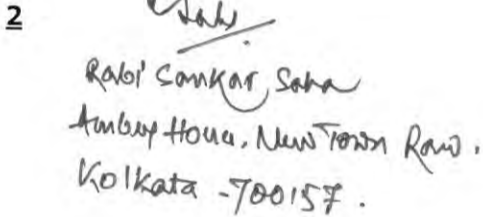 2
Rabi Sankar Saha
House, New Town Road.
Kolkata - 700157.